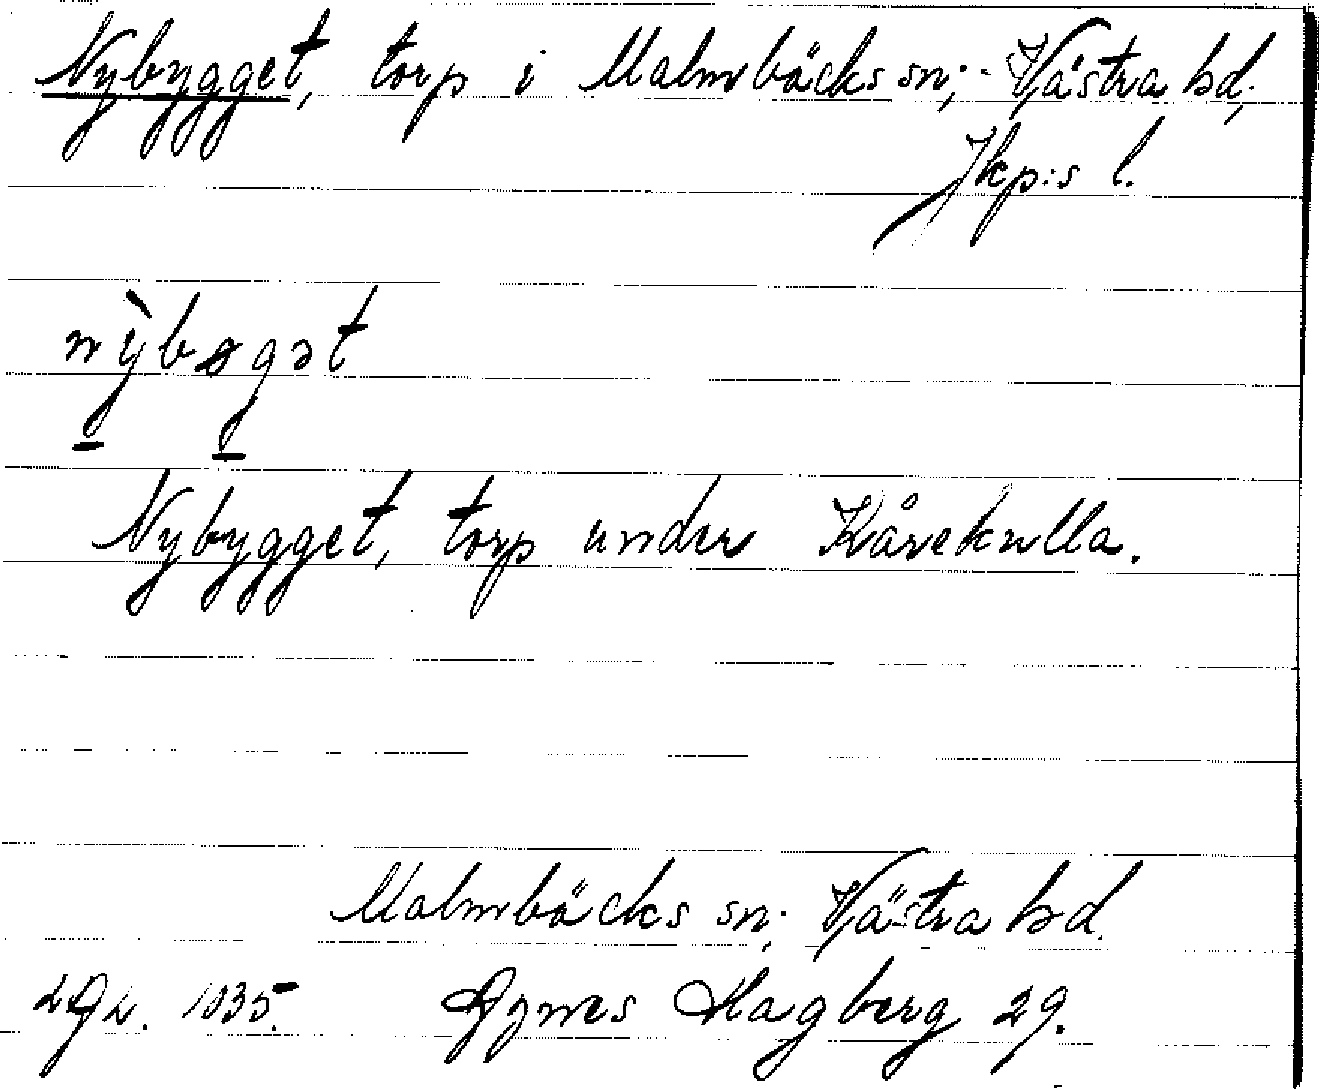 Nybygget, torp i Malmbäcks sn; Västra hd;
Jkp:s l.
nỳbøgət
Nybygget, torp under Kårekulla.
Malmbäcks sn; Västra hd.
1935. Agnes Hagberg 29.